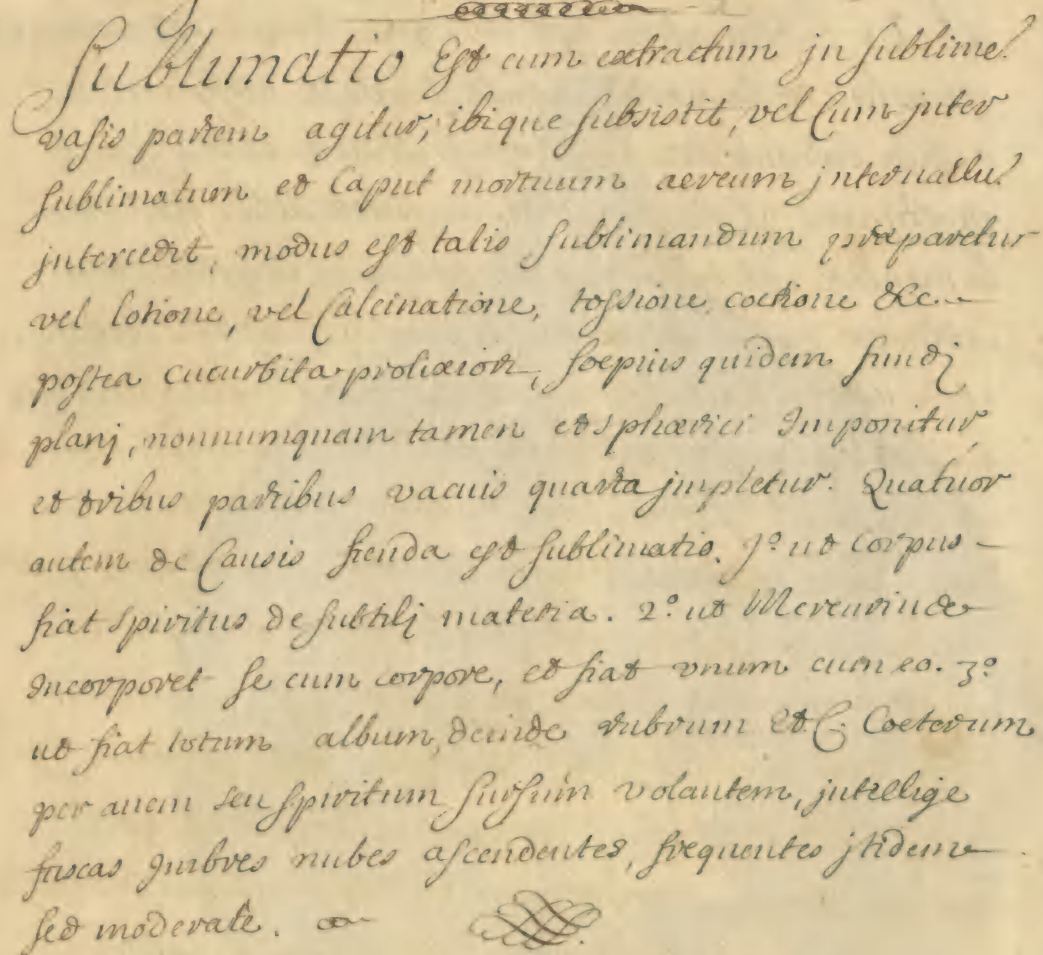 Sublimatio Est cum extractum jn sublimē
vasis partem agitur, ibique subsistit, vel Cum jnter
sublimatum et Caput mortuum aereum jnteruallū
jntercedit, modus est talis sublimandum præparetur
vel lotione, vel Calcinatione, tossione, coctione &c.
postea cucurbita prolixiori, sœpius quidem fundj
planj, nonnumquam tamen et sphœrici Imponitur,
et tribus partibus vacuis quarta jmpletur. Quatuor
autem de Causis fienda est sublimatio. 1º ut corpus
fiat spiritus de subtilj materia. 2º ut Mercurius
Incorporet se cum corpore, et fiat vnum cum eo. 3º
ut fiat totum album, deinde rubrum Et C. Coeterum
per auem seu spiritum sursum volantem, jntellige
fuscas Imbres nubes ascendentes, frequentes jtidem
sed moderate.